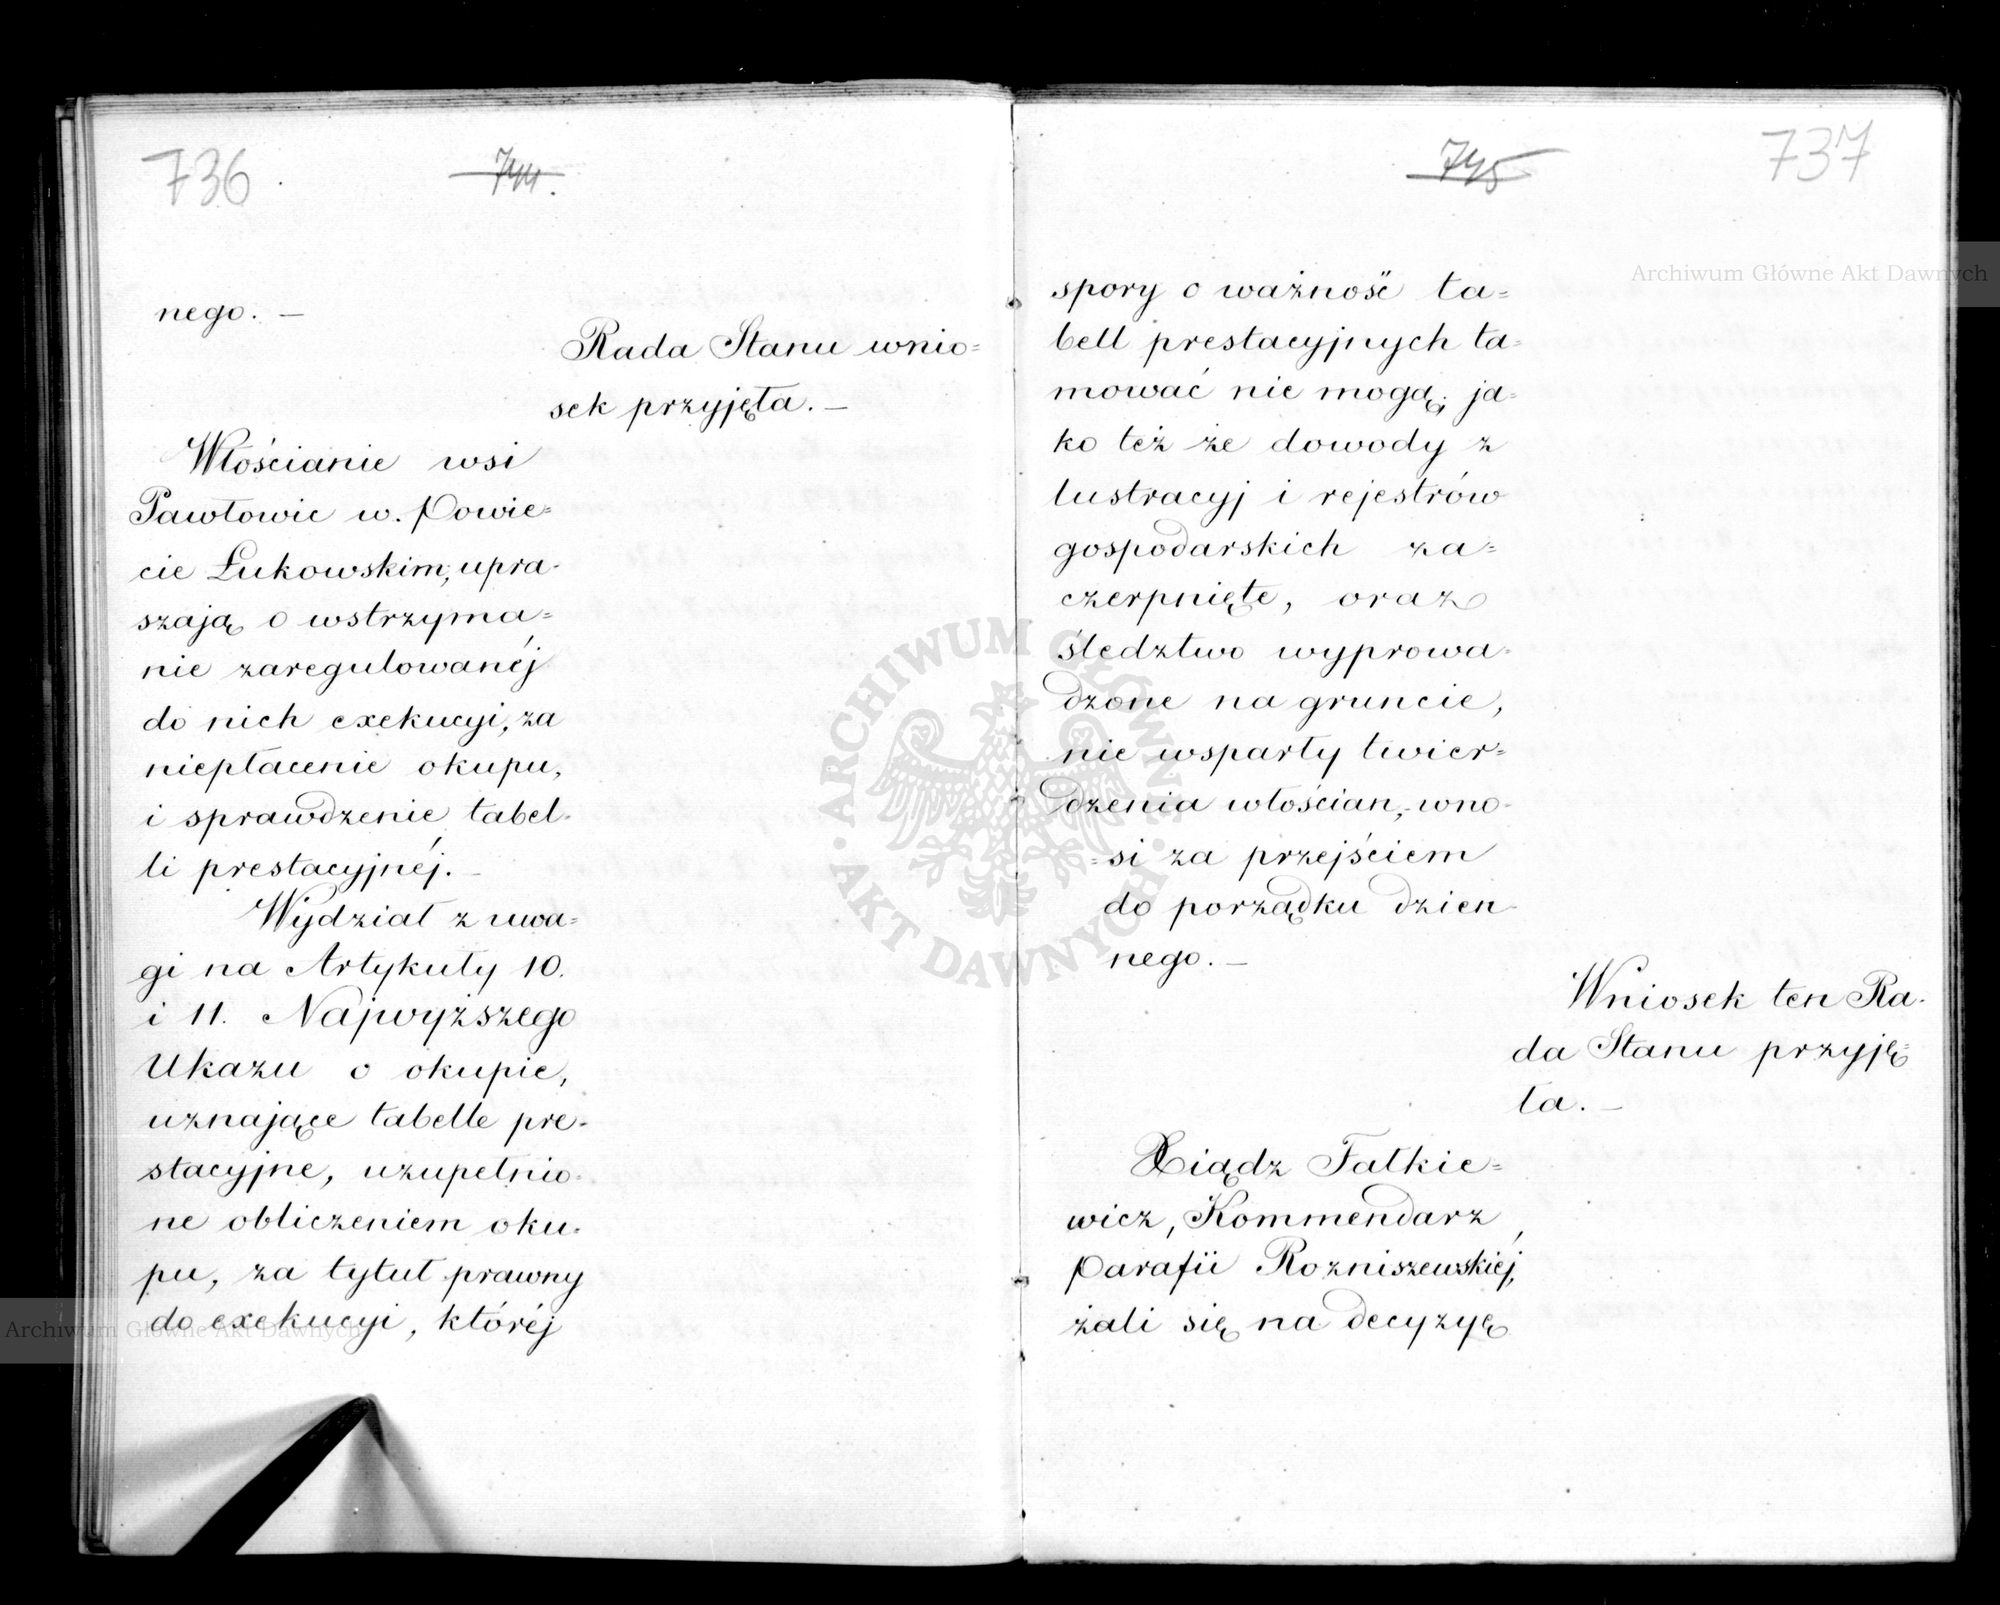 736
744.
nego. —
Rada Stanu wnio=
sek przyjęła. —
Włościanie wsi
Pawłowic w. Powie=
cie Łukowskim, upra-
szają o wstrzyma=
nie zaregulowanéj
do nich exekucyi, za
niepłacenie okupu,
i sprawdzenie tabel-
li prestacyjnéj. —
Wydział z uwa-
gi na Artykuły 10.
i 11. Najwyższego
Ukazu o okupie,
uznające tabelle pre-
stacyjne, uzupełnio-
ne obliczeniem oku-
pu, za tytuł prawny
do exekucyi, któréj
745
737
spory o ważność ta=
bell prestacyjnych ta-
mować nie mogą; ja-
ko też że dowody z
lustracyj i rejestrów
gospodarskich za=
czerpnięte, oraz
śledztwo wyprowa-
dzone na gruncie,
nie wsparły twier=
dzenia włościan, wno-
=si za przejściem
do porządku dzien-
nego. —
Wniosek ten Ra-
da Stanu przyję=
ła. —
Xiądz Fałkie=
wicz, Kommendarz
Parafii Rozniszewskiéj,
żali się na decyzyę
Archiwum Główne Akt Dawnych
ARCHIWUM GŁÓWNE · AKT DAWNYCH ·
Archiwum Główne Akt Dawnych